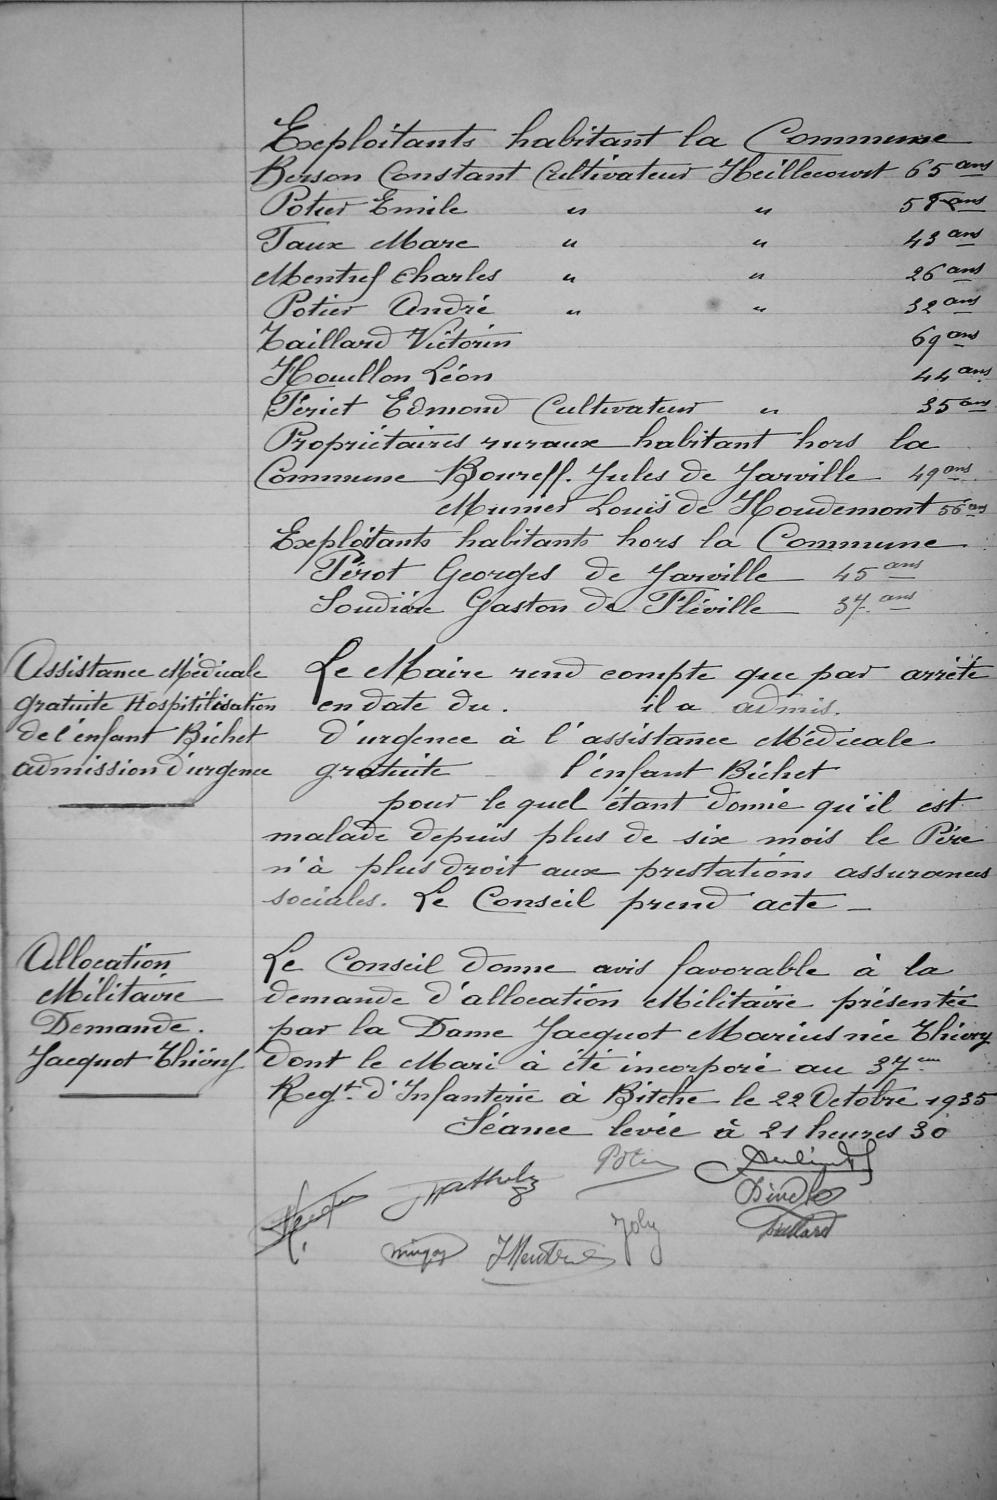 Exploitants habitant la Commune
Berson Constant Cultivateur Heillecourt 65 ans
Potier Emile " " 58 ans
Taux Marc " " 43 ans
Mentref Charles " " 26 ans
Potier André " " 32 ans
Taillard Victorin 69 ans
Houillon Léon 44 ans
Périct Edmond Cultivateur " 35 ans
Propriétaires ruraux habitant hors la
Commune Boureff. Jules de Jarville 49 ans
Munier Louis de Houdemont 56 ans
Exploitants habitants hors la Commune
Pérot Georges de Jarville 45 ans
Soudière Gaston de Fléville 37 ans
Assistance Médicale
gratuite Hospitilisation
de l'enfant Bichet
admission d'urgence
Le Maire rend compte que par arrêté
en date du . il a admis.
d'urgence à l'assistance Médicale
gratuite l'enfant Bichet
pour lequel étant donné qu'il est
malade depuis plus de six mois le Père
n'à plus droit aux prestations assurances
sociales. Le Conseil prend acte _
Allocation
Militaire
Demande.
Jacquot Thiéry
Le Conseil donne avis favorable à la
demande d'allocation Militaire présentée
par la Dame Jacquot Marius née Thiéry
dont le Mari à été incorporé au 37 em
Regt d'Infanterie à Bitche le 22 Octobre 1935
Séance levée à 21 heures 30
Potier
Joly
Taillard